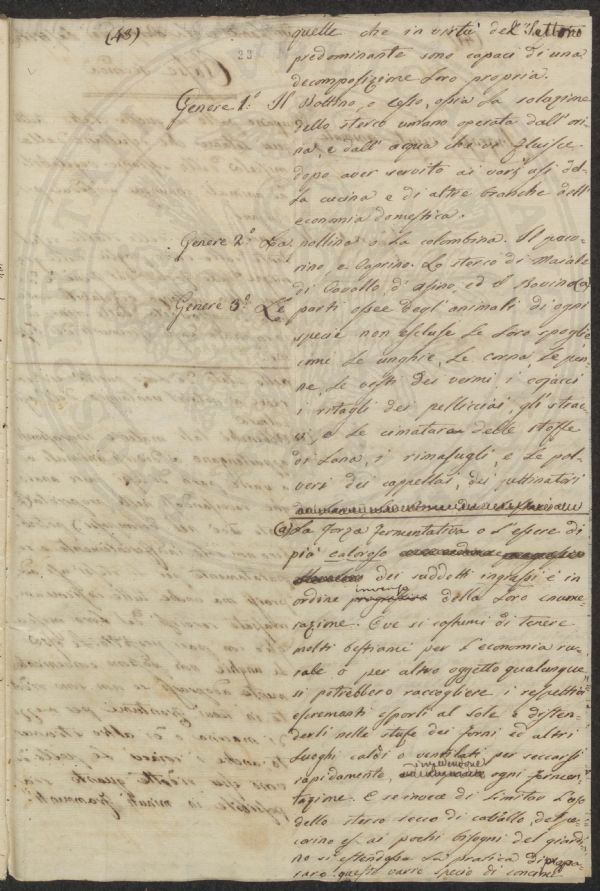 (43)
23
quelle che in virtù dell'Settono
predominante sono capaci di una
decomposizione loro propria.
Genere 1.° Il Bottino, o Cesso, ossia la
dello sterco umano operata dall'ori-
na, e dall'acqua che vi fluisce
dopo aver servito ai varj usi del-
la cucina e di altre branche dell'
economia domestica.
Genere 2.° La nellina o la colombina. Il peco-
rino, e Caprino. Lo sterco di Maiale
di Cavallo, d'asino, ed il Bovino (a)
Genere 3.° Le parti ossee degl'animali di ogni
specie non escluse le loro spoglie
come le unghie, le corna, le pen-
ne, le vesti dei vermi, i cojacci
i ritagli dei pelliciai, gli strac-
ci, e le cimature delle stoffe
di lana, i rimasugli, e le pol-
veri dei cappellai, dei pettinatori
(a) La forza fermentativa o l'essere di
più caloroso
dei suddetti ingrassi è in
ordine inverso della loro enume-
razione. Ove si costumi di tenere
molti bestiami per l'economia ru-
rale o per altro oggetto qualunque
si potrebbero raccogliere i respettivi
escrementi esporli al sole o disten-
derli nelle stufe dei forni ed altri
luoghi caldi o ventilati per seccarsi
rapidamente, impedendone ogni fermen-
tazione. E se invece di limitar l'uso
dello sterco secco di cavallo, del pe-
corino ec. ai pochi bisogni del giardi-
no si estendesse la pratica di prepa-
rare queste varie specie di concime